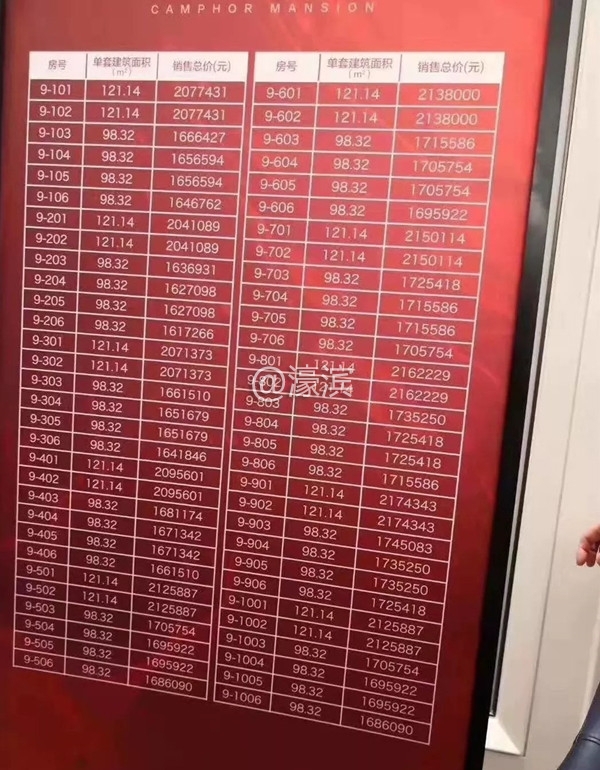 CAMPHOR MANSION
房号 单套建筑面积(m²) 销售总价(元)
9-101 121.14 2077431
9-102 121.14 2077431
9-103 98.32 1666427
9-104 98.32 1656594
9-105 98.32 1656594
9-106 98.32 1646762
9-201 121.14 2041089
9-202 121.14 2041089
9-203 98.32 1636931
9-204 98.32 1627098
9-205 98.32 1627098
9-206 98.32 1617266
9-301 121.14 2071373
9-302 121.14 2071373
9-303 98.32 1661510
9-304 98.32 1651679
9-305 98.32 1651679
9-306 98.32 1641846
9-401 121.14 2095601
9-402 121.14 2095601
9-403 98.32 1681174
9-404 98.32 1671342
9-405 98.32 1671342
9-406 98.32 1661510
9-501 121.14 2125887
9-502 121.14 2125887
9-503 98.32 1705754
9-504 98.32 1695922
9-505 98.32 1695922
9-506 98.32 1686090
房号 单套建筑面积(m²) 销售总价(元)
9-601 121.14 2138000
9-602 121.14 2138000
9-603 98.32 1715586
9-604 98.32 1705754
9-605 98.32 1705754
9-606 98.32 1695922
9-701 121.14 2150114
9-702 121.14 2150114
9-703 98.32 1725418
9-704 98.32 1715586
9-705 98.32 1715586
9-706 98.32 1705754
9-801 121.14 2162229
2162229
9-803 98.32 1735250
9-804 98.32 1725418
9-805 98.32 1725418
9-806 98.32 1715586
9-901 121.14 2174343
9-902 121.14 2174343
9-903 98.32 1745083
9-904 98.32 1735250
9-905 98.32 1735250
9-906 98.32 1725418
9-1001 121.14 2125887
9-1002 121.14 2125887
9-1003 98.32 1705754
9-1004 98.32 1695922
9-1005 98.32 1695922
9-1006 98.32 1686090
@濠浜